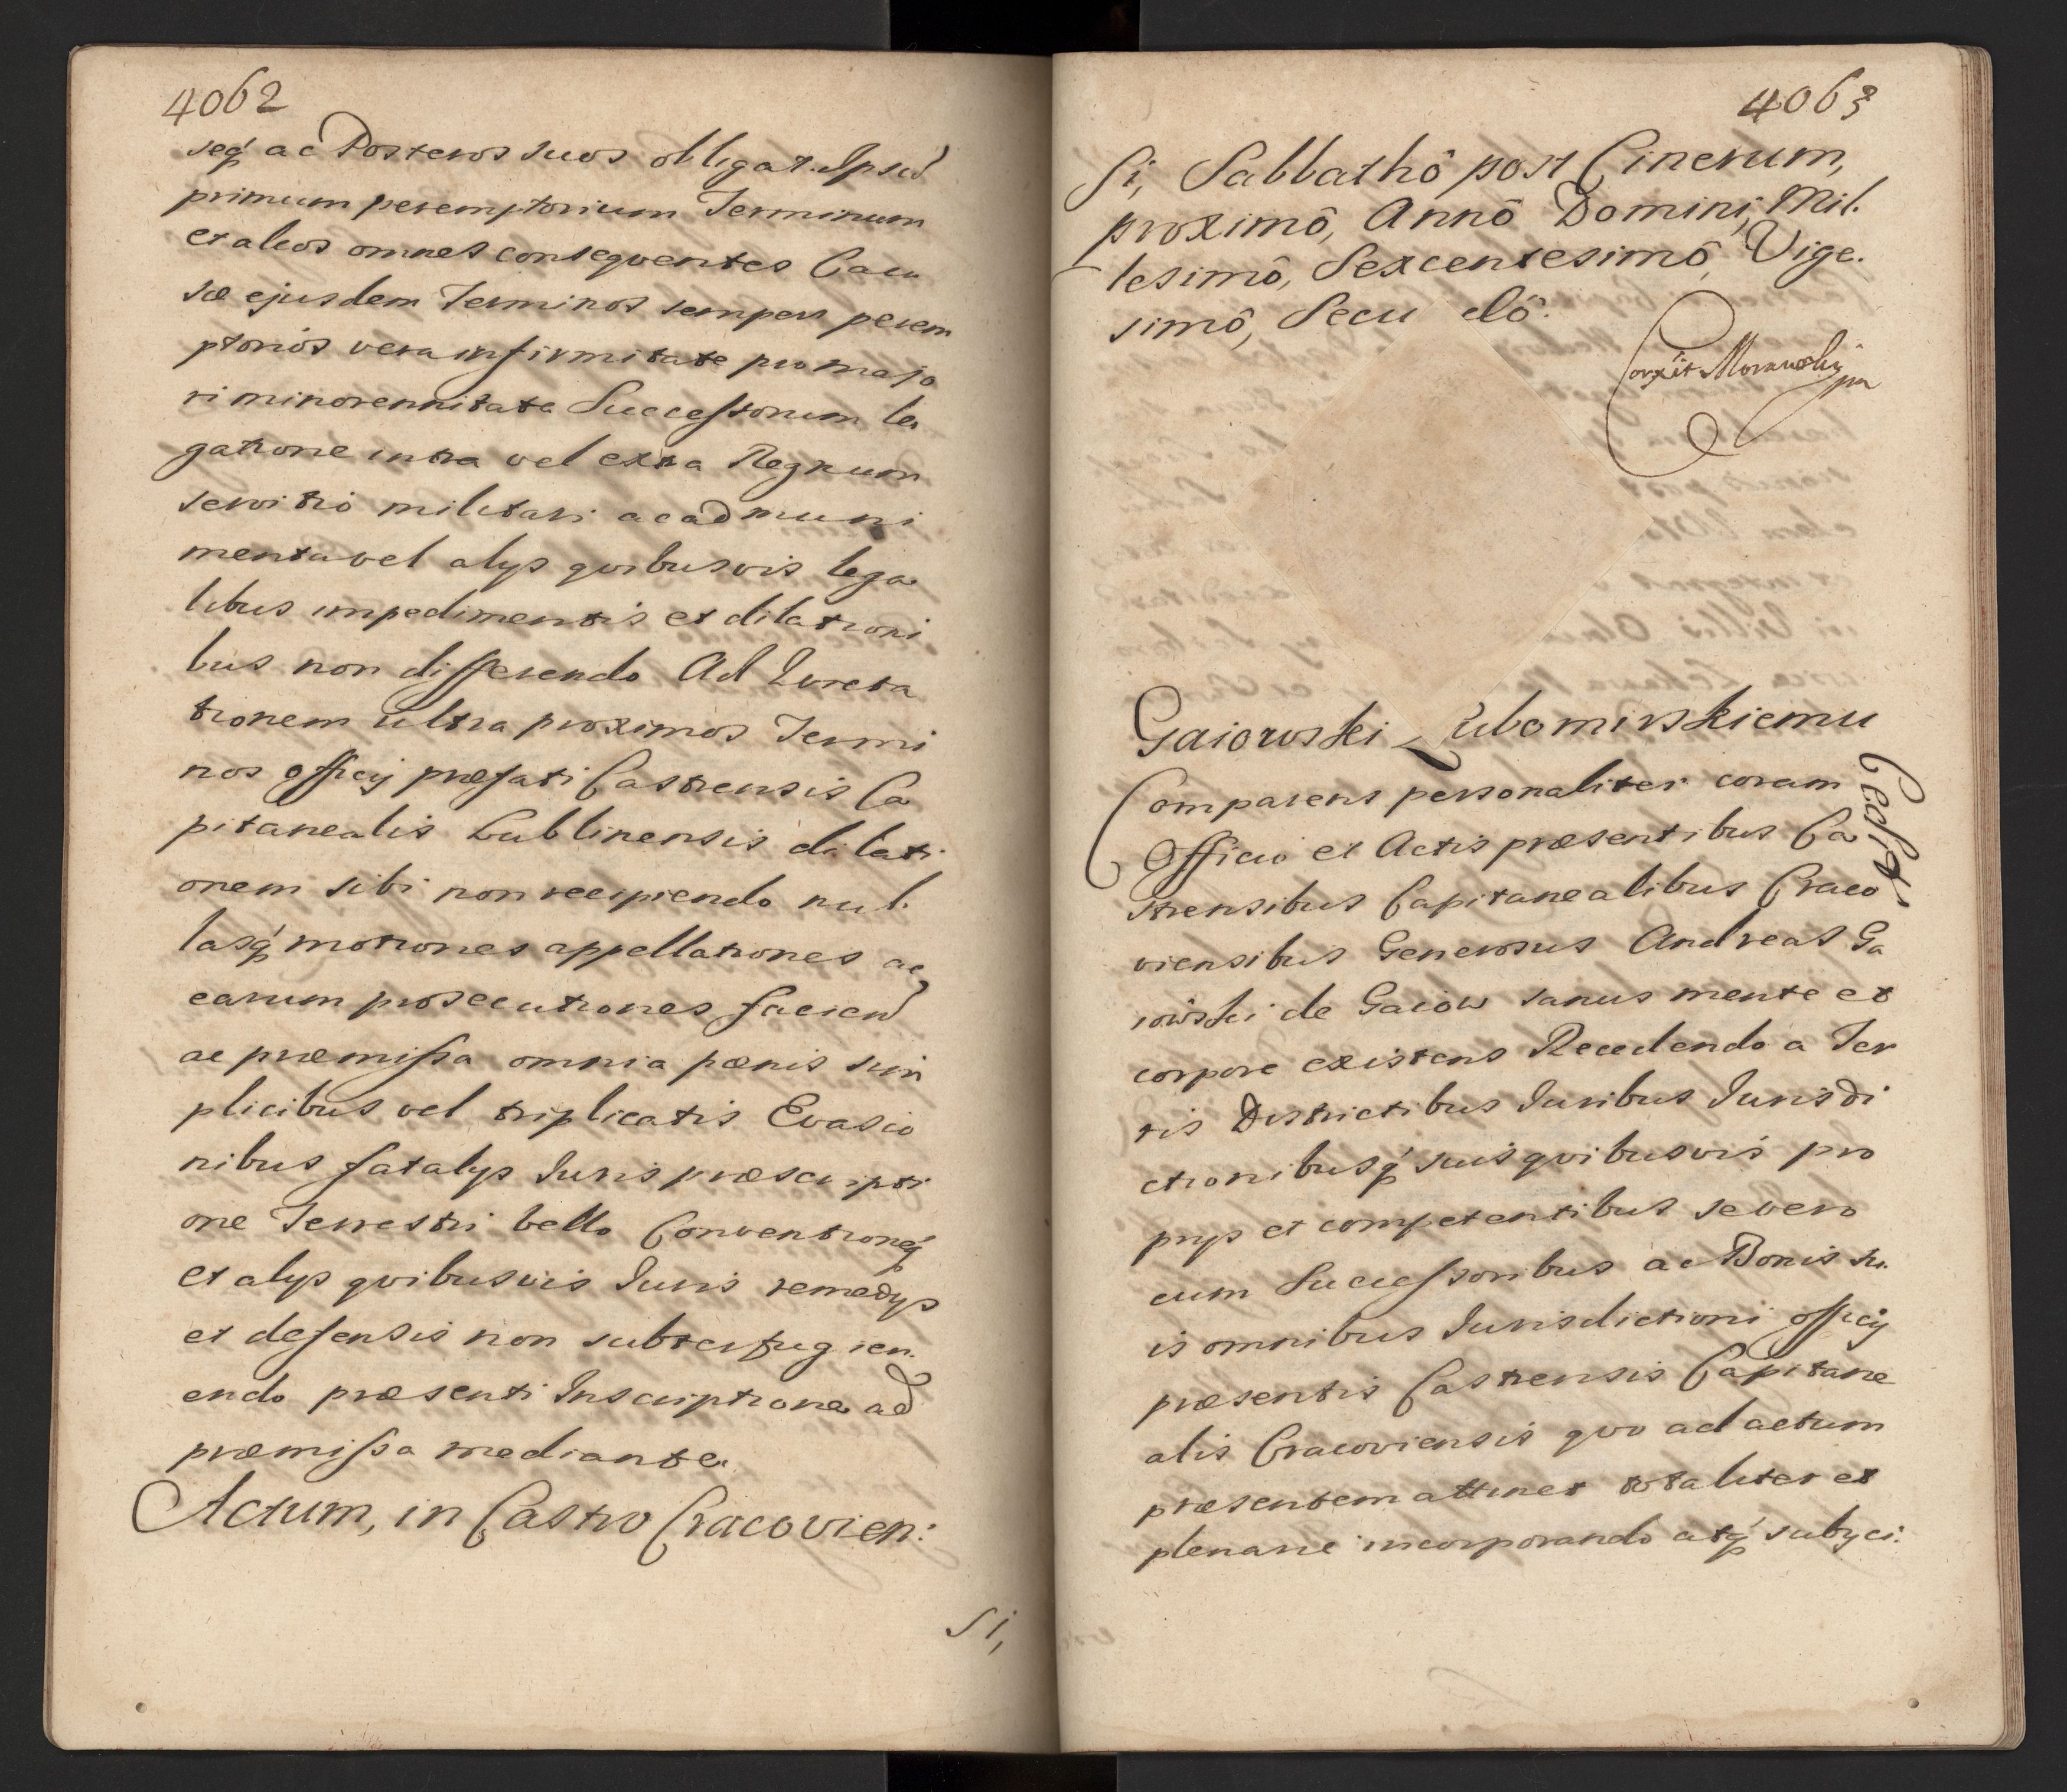 4062
seqꝫ ac Posteros suos obligat. Ipsud
primum peremptorium Terminum
et alios omnes consequentes Cau
sæ ejusdem Terminos semper perem
ptorios vera infirmitate pro majo
ri minorennitate Successorum le
gatione intra vel extra Regnum
servitio militari ac ad muni
menta vel alys qvibusvis lega
libus impedimentis et dilationi
bus non differendo Ad Evicta
tionem ultra proximos Termi
nos officij præfati Castrensis Ca
pitanealis Lublinensis dilati
onem sibi non recipiendo nul
lasqꝫ motiones appellationes ac
earum prosecutiones faciend
ac præmissa omnia pænis sim
plicibus vel triplicatis Evasio
nibus fatalys Iuris præscripti
one Terrestri bello Conventioneqꝫ
et alys qvibusvis Iuris remedys
et defensis non subterfugien
endo præsenti Inscriptione ad
præmissa mediante.
Actum, in Castro Cracovien:
si,
4063
si, Sabbathô post Cinerum,
proximô, Annô Domini, Mil.
lesimô, Sexcentesimô, Vige.
simô, Secu dô.
Corxit Morawski
mp
Gaiowski Lubomirskiemu
Cessit
Comparens personaliter coram
Officio et Actis præsentibus Ca
strensibus Capitanealibus Craco
viensibus Generosus Andreas Ga
iowski de Gaiow sanus mente et
corpore existens Recedendo a Ter
ris Districtibus Iuribus Iurisdi
ctionibusqꝫ suis qvibusvis pro
prys et competentibus se vero
cum Successoribus ac Bonis su
is omnibus Iurisdictioni officij
præsentis Castrensis Capitane
alis Cracoviensis qvo ad actum
præsentem attinet totaliter et
plenarie incorporando atqꝫ subyci.